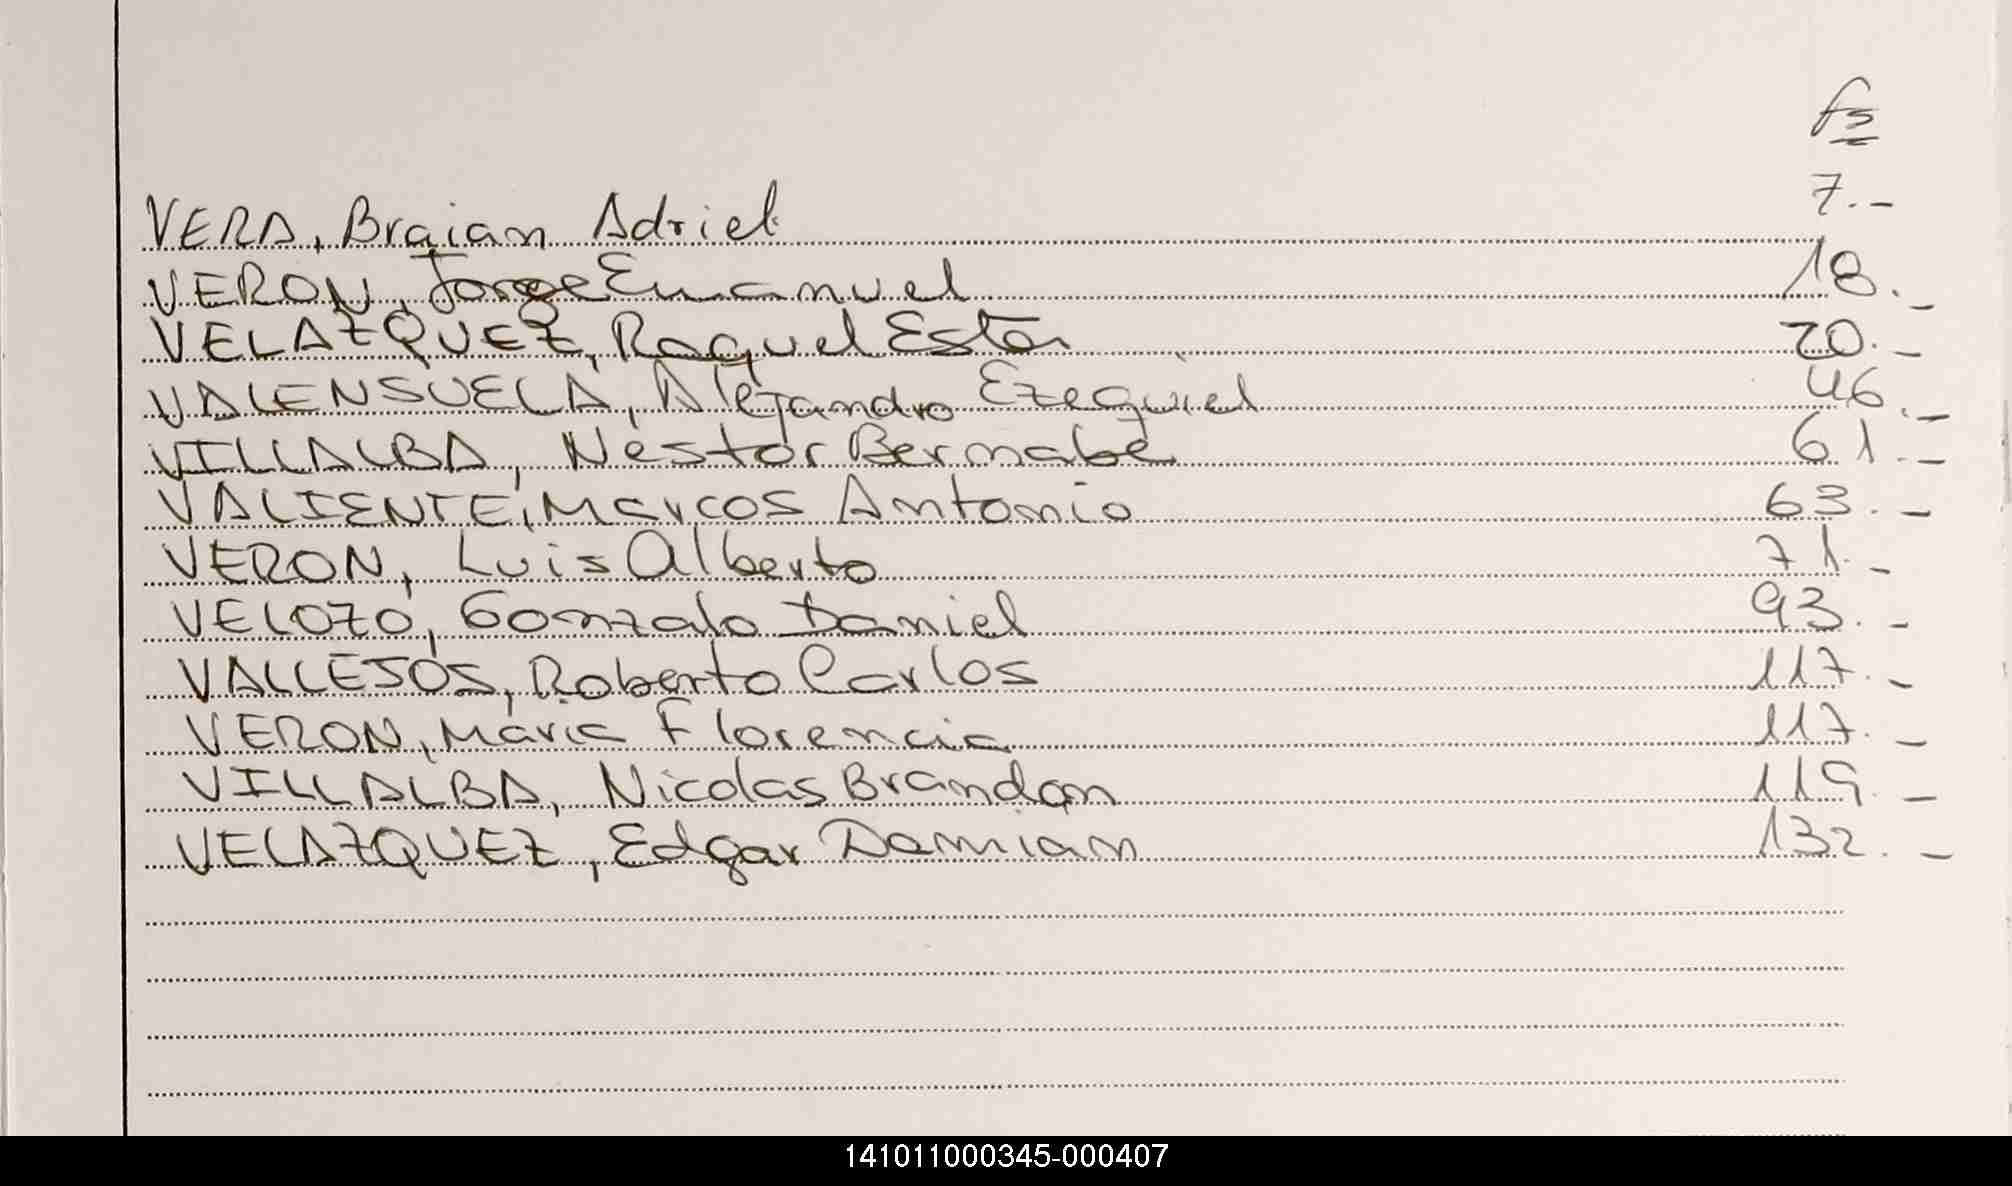 fs
VERA, Braian Adriel 7.-
VERON, Jorge Emanuel 18.-
VELAZQUEZ, Raquel Ester 20.-
VALENSUELA, Alejandro Ezequiel 46.-
VILLALBA, Nestor Bernabe 61.-
VALIENTE, Marcos Antonio 63.-
VERON, Luis Alberto 71.-
VELOZO, Gonzalo Daniel 93.-
VALLEJOS, Roberto Carlos 117.-
VERON, Maria Florencia 117.-
VILLALBA, Nicolas Brandon 119.-
VELAZQUEZ, Edgar Damian 132.-
141011000345-000407